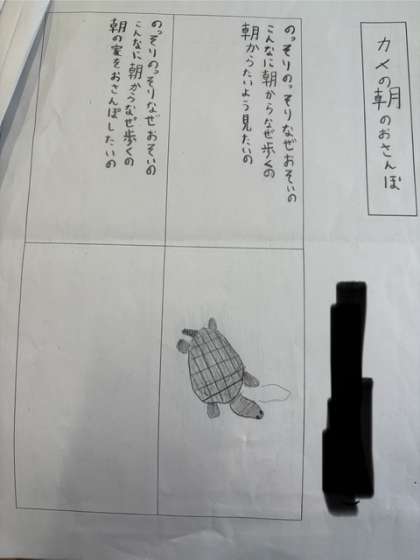 カメの朝のおさんぽ
のっそりのっそりなぜおそいの
こんなに朝からなぜ歩くの
朝からたいよう見たいの
のっそりのっそりなぜおそいの
こんなに朝からなぜ歩くの
朝の家をおさんぽしたいの